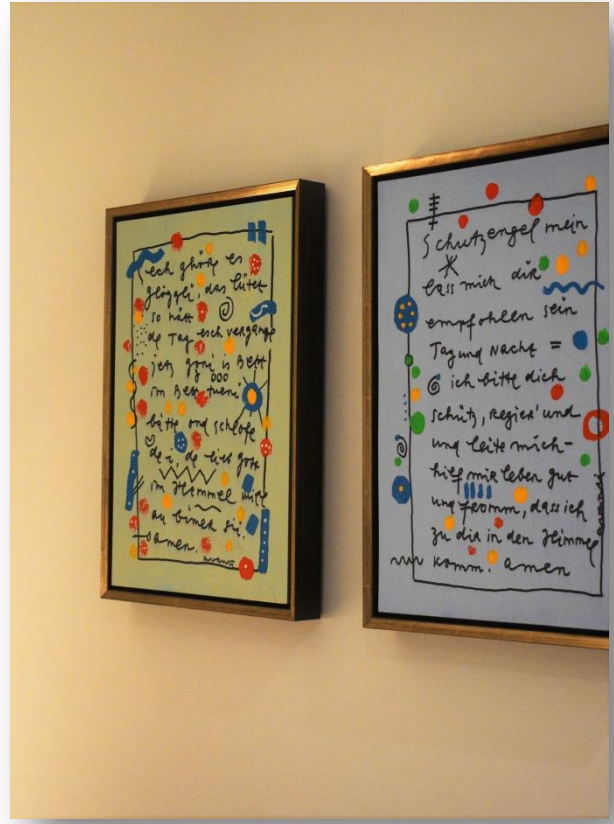 ech ghöre es
glöggli, das lütet
so nätt
de Tag esch vergange
jetz goni is Bett
im Bett tueni
bätte ond schlofe
de lieb gott
im Hemmel
au bimer si.
amen.
Schutzengel mein
lass mich dir
empfohlen sein
Tag und Nacht =
ich bitte dich
schütz, regier' und
und leite mich-
hilf mir leben gut
und fromm, dass ich
zu dir in den Himmel
komm. amen